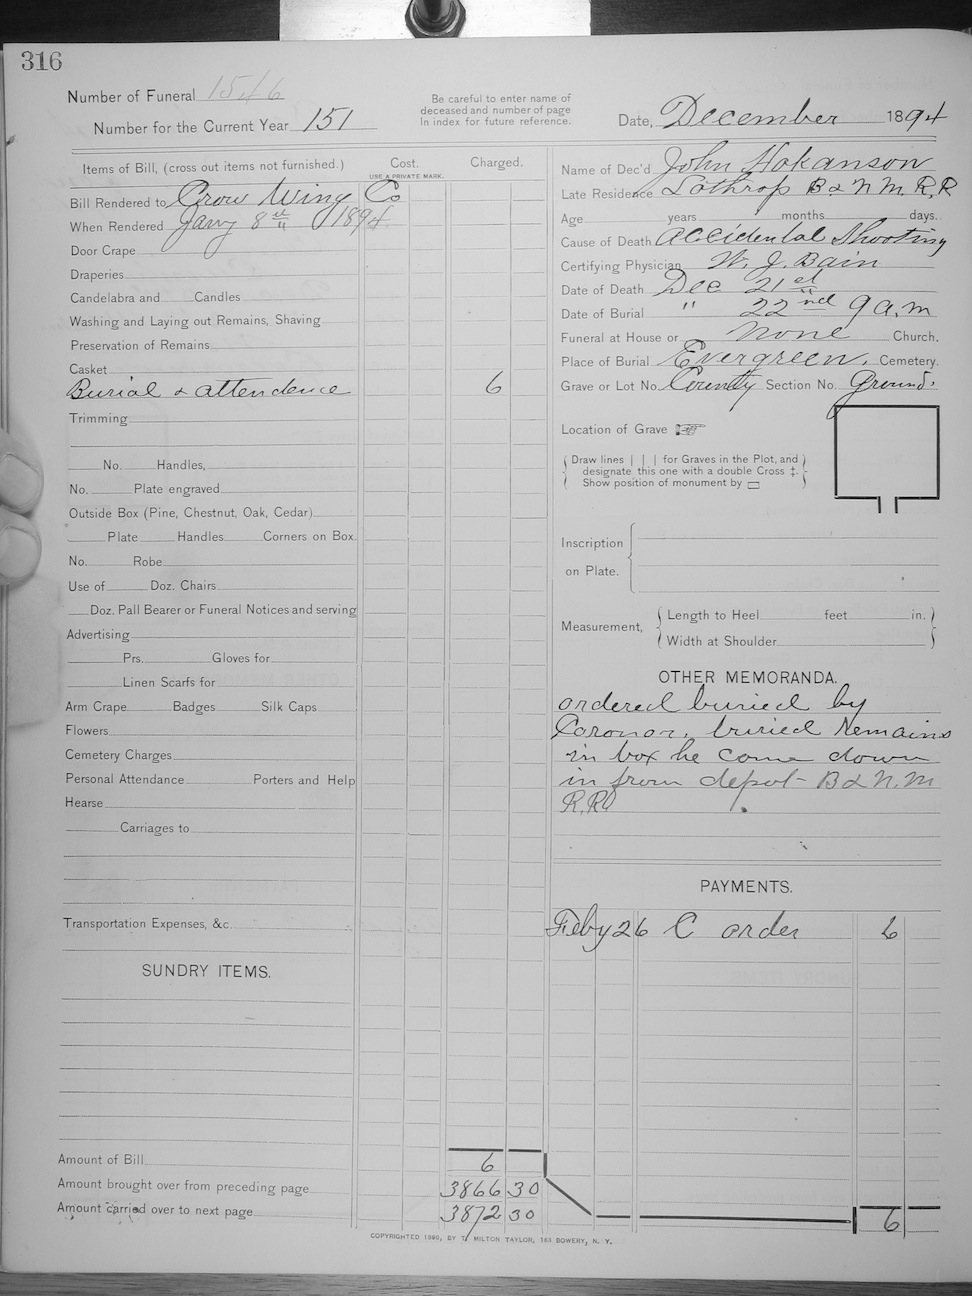 316
Number of Funeral 1546
Number for the Current Year 151
Be careful to enter name of
deceased and number of page
In index for future reference.
Date, December 1894
Items of Bill, (cross out items not furnished.) Cost. Charged.
USE A PRIVATE MARK.
Bill Rendered to Crow Wing Co
When Rendered Jany 8th 1894
Door Crape
Draperies
Candelabra and Candles
Washing and Laying out Remains, Shaving
Preservation of Remains
Casket
Burial & attendence 6
Trimming
No. Handles,
No. Plate engraved
Outside Box (Pine, Chestnut, Oak, Cedar)
Plate Handles Corners on Box.
No. Robe
Use of Doz. Chairs
Doz. Pall Bearer or Funeral Notices and serving
Advertising
Prs. Gloves for
Linen Scarfs for
Arm Crape Badges Silk Caps
Flowers
Cemetery Charges
Personal Attendance Porters and Help
Hearse
Carriages to
Transportation Expenses, &c.
SUNDRY ITEMS.
Amount of Bill 6
Amount brought over from preceding page 3866 30
Amount carried over to next page 3872 30
Name of Dec'd John Hokanson
Late Residence Lothrop B & N M R, R
Age years months days.
Cause of Death accidental Shooting
Certifying Physician W. J. Bain
Date of Death Dec 21st
Date of Burial " 22nd 9 a, m
Funeral at House or None Church.
Place of Burial Evergreen, Cemetery.
Grave or Lot No. County Section No. Ground.
Location of Grave
Draw lines | | | for Graves in the Plot, and
designate this one with a double Cross ‡.
Show position of monument by
Inscription
on Plate.
Measurement, Length to Heel feet in.
Width at Shoulder
OTHER MEMORANDA.
ordered buried by
Coronor, buried Remains
in box he come down
in from depot - B & N, M
R, R
PAYMENTS.
Feby 26 C order 6
6
COPYRIGHTED 1890, BY T. MILTON TAYLOR, 163 BOWERY, N. Y.